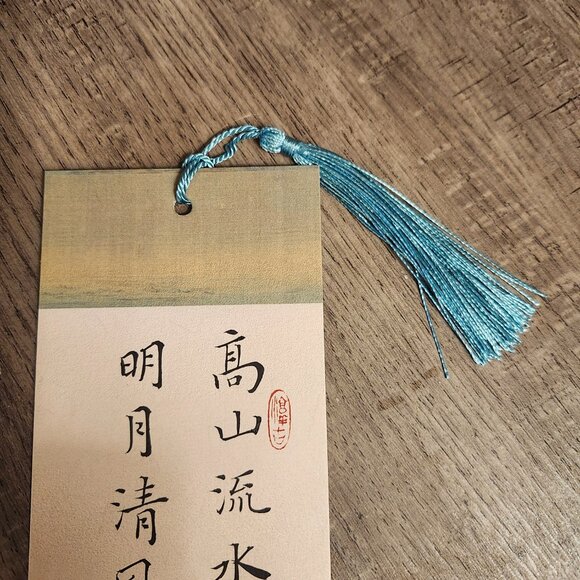 髙山流水
明月清